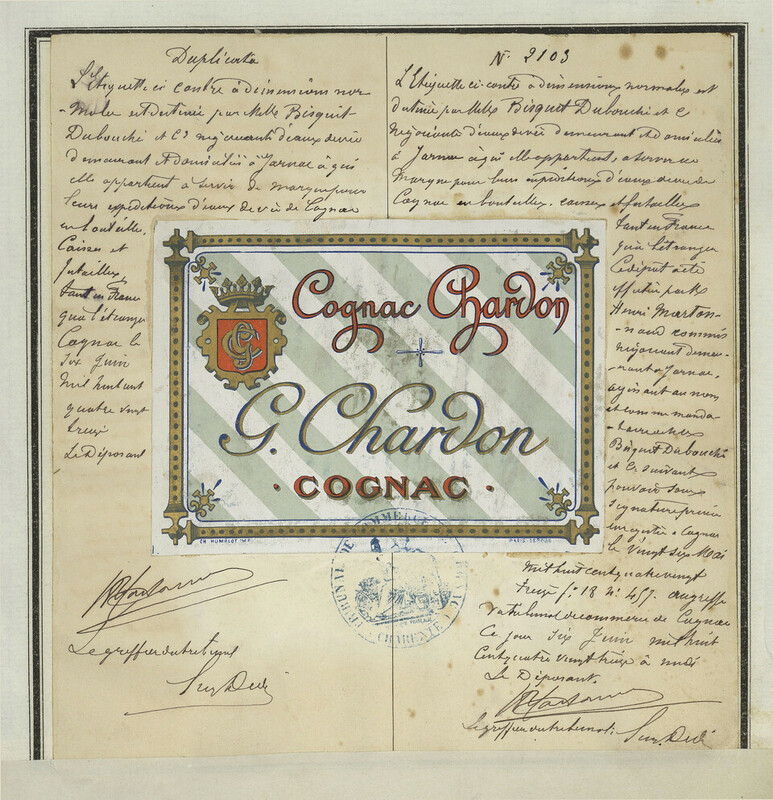 Duplicata
L'Etiquette ci contre à dimensions nor-
-males est destinée par MMs Bisquit-
Dubouché et Cie négociants d'eaux de vie
demeurant et domiciliés à Jarnac à qui
elle appartient à servir de marque pour
leurs expéditions d'eaux de vie de Cognac
en bouteilles,
Caisses et
futailles,
tant en France
qu'à l'étranger
Cognac le
six Juin
mil huit cent
quatre vingt
treize
Le Déposant
Le greffier du tribunal
N° 2103
L'Etiquette ci-contre à dimensions normales est
destinée par MMs Bisquit Dubouché et C
Négociants d'eaux de vie demeurant et domiciliés
à Jarnac à qui elle appartient, à servir de
Marque pour leurs expéditions d'eaux de vie de
Cognac en bouteilles, caisses et futailles
tant en France
qu'à l'étranger
Ce dépôt a été
effectué par M
Henri
commis
négociant demeu-
-rant à Jarnac,
agissant au nom
et comme manda-
-taire de MM
Bisquit Dubouché
et Cie suivant
pouvoir sous
signature privée
enregistré à Cognac
le Vingt six Mai
mil huit cent quatre vingt
treize f: 18 N° 457. au greffe
du tribunal de commerce de Cognac
Ce jour Six Juin mil huit
cent quatre vingt treize à midi
Le Déposant.
Le greffier du tribunal
Cognac Chardon
G. Chardon
COGNAC
CH. HUMBLOT IMP.
TRIBUNAL DE COMMERCE DE COGNAC
CHARENTE